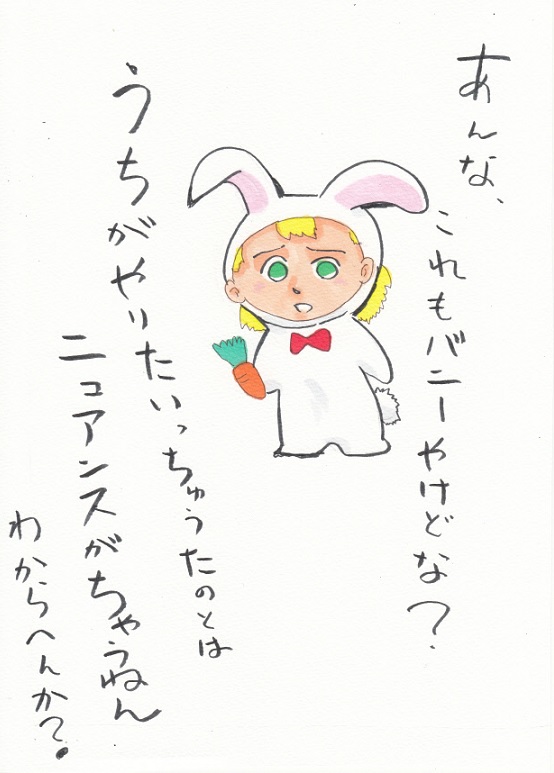 あんな、
これもバニーやけどな?
うちがやりたいっちゅうたのとは
ニュアンスがちゃうねん
わからへんか?